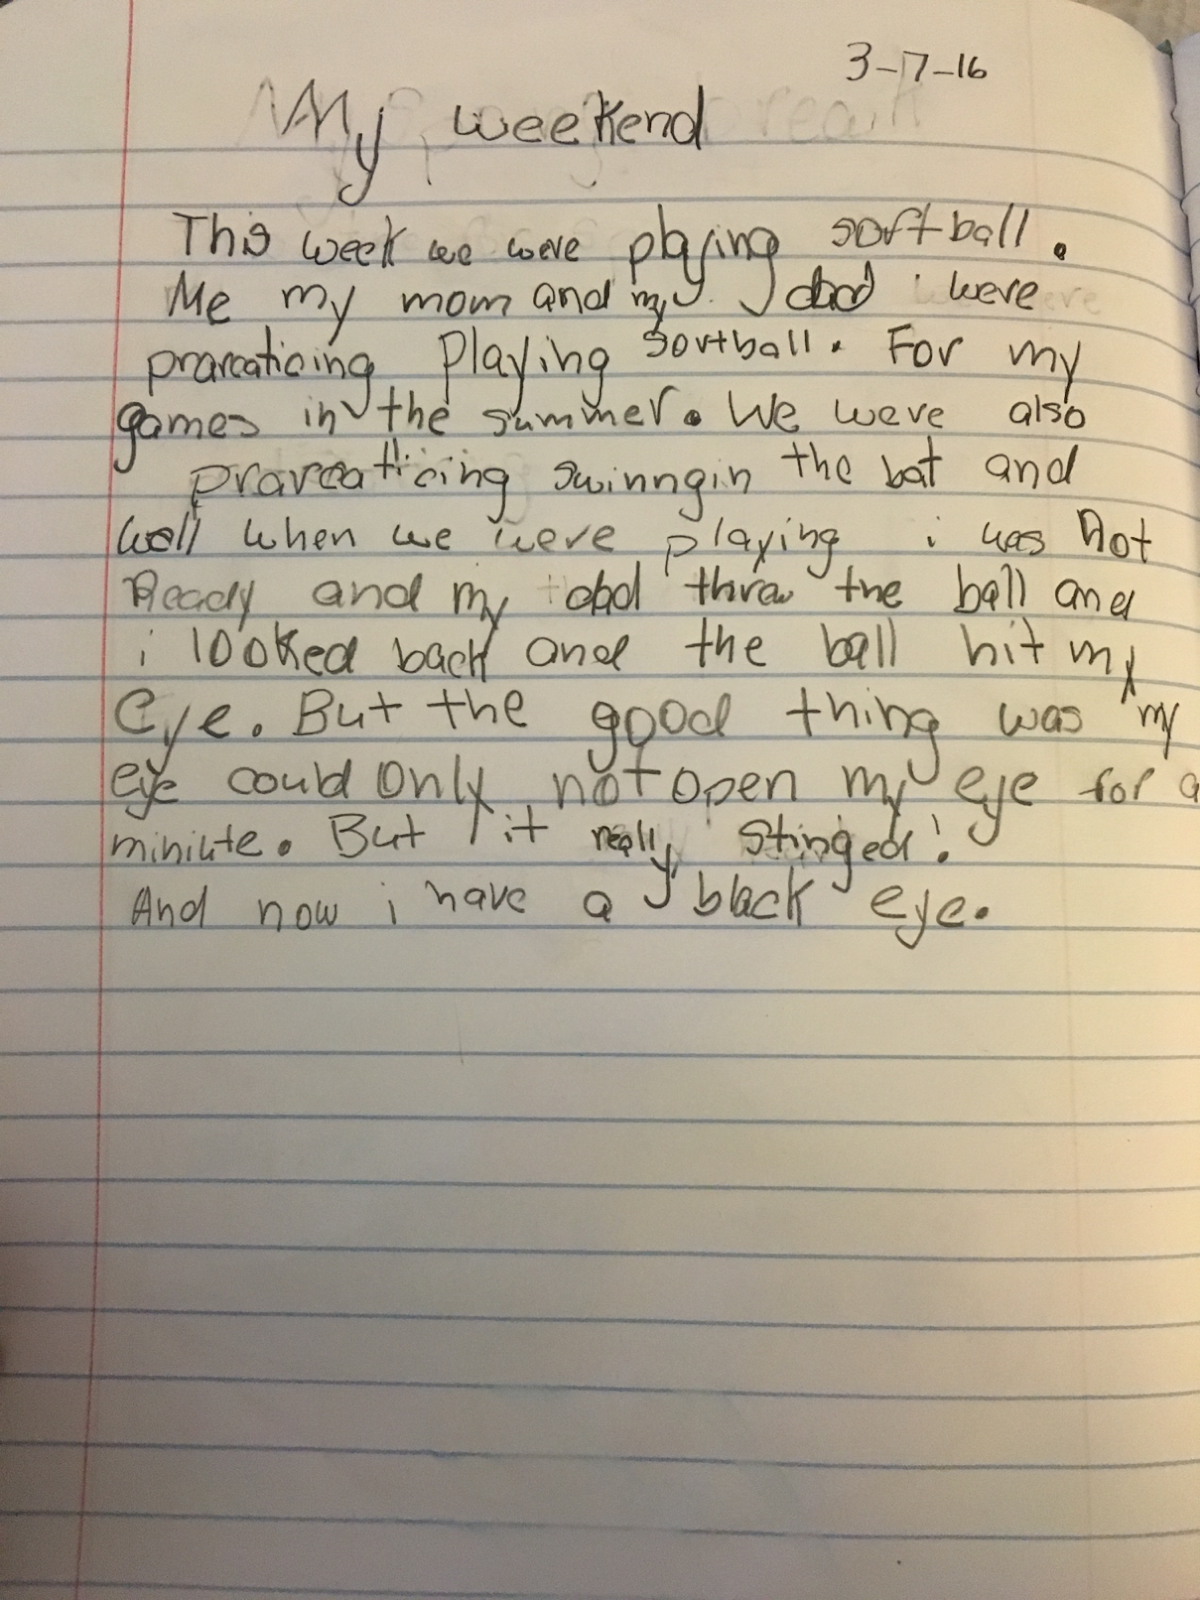 3-7-16
My weekend
This week we were playing softball.
Me my mom and my dad i were
prarcaticing Playing sortball. For my
games in the summer. We were also
prarcatticing swinngin the bat and
well when we were playing i was Not
Ready and my dad threw the ball and
i looked back and the ball hit my
Eye. But the good thing was my
eye could only not open my eye for a
miniute. But it really stinged!
And now i have a black eye.